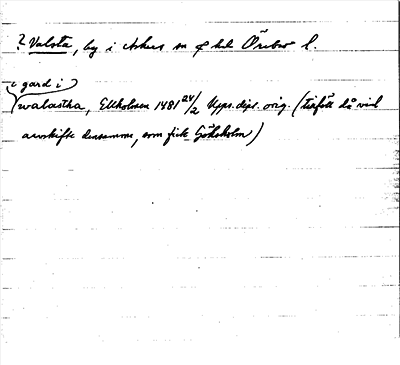 ? Valsta, by i Askers sn o hd Örebro l.
(i gard i)
walastha, Ekholmen 1481 24/2 Upps. dipl. orig. (tillföll då vid
arvskifte densamme, som fick Göksholm)